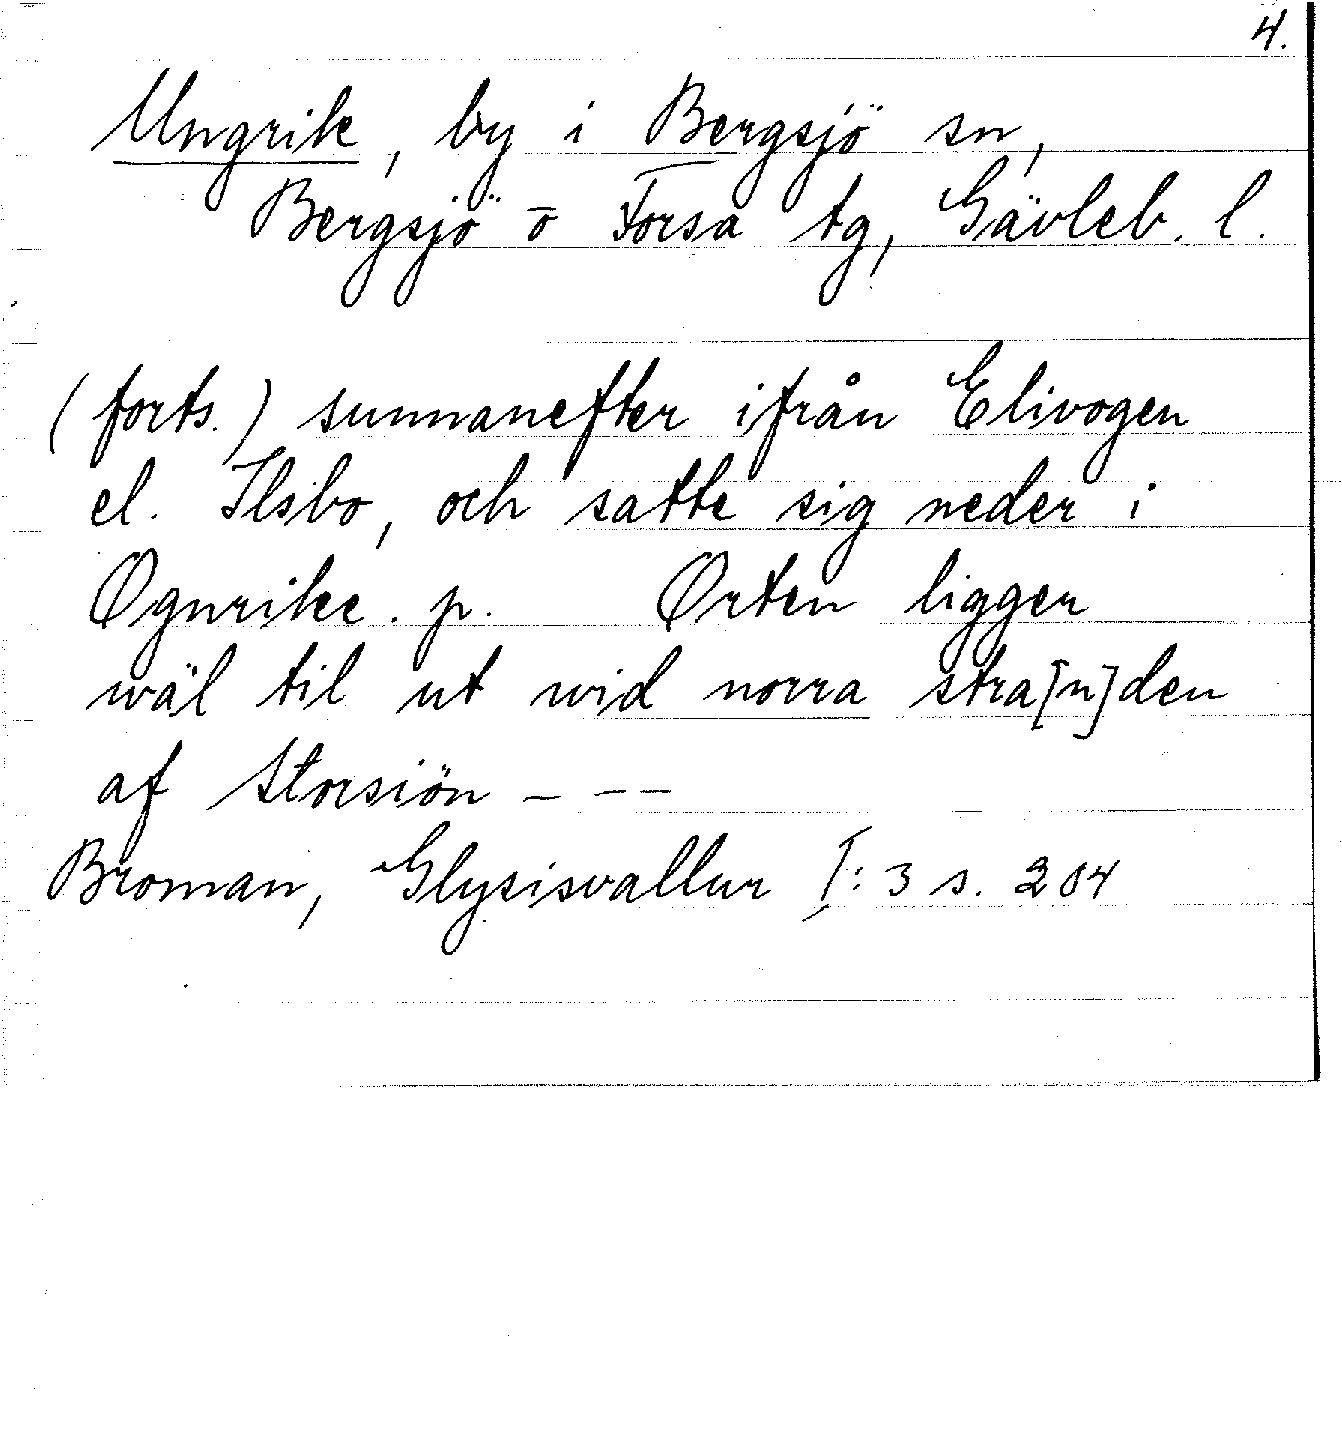 4.
Ungrike, by i Bergsjö sn,
Bergsjö o Forsa tg, Gävleb. l.
(forts.) sunnanefter ifrån Elivogen
el. Ilsbo, och satte sig neder i
Ognrike. p. Orten ligger
wäl til ut wid norra stra[n]den
af Storsiön - - -
Broman, Glysisvallur I: 3 s. 204